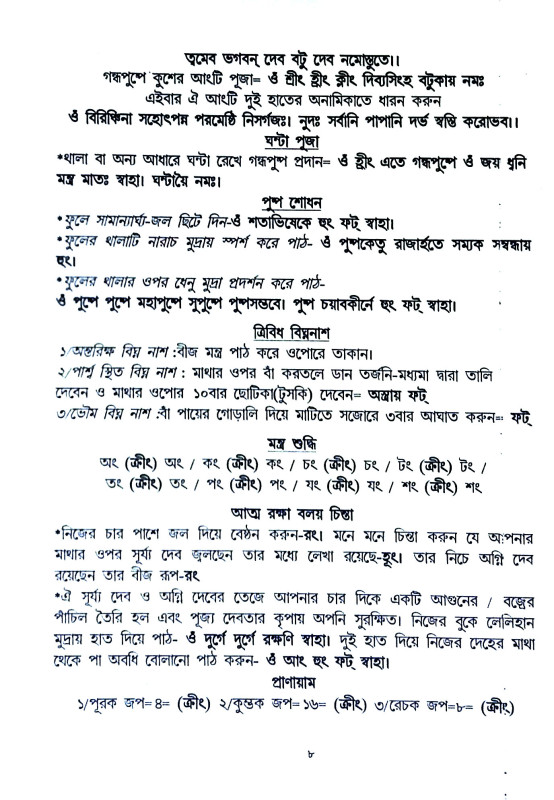 ত্বমেব ভগবন্ দেব বটু দেব নমোস্তুতে।।
গন্ধপুষ্পে কুশের আংটি পূজা= ওঁ শ্রীং হ্রীং ক্লীং দিব্যসিংহ বটুকায় নমঃ
এইবার ঐ আংটি দুই হাতের অনামিকাতে ধারন করুন
ওঁ বিরিঞ্চিনা সহোৎপন্ন পরমেষ্ঠি নিসর্গজঃ। নুদঃ সর্বানি পাপানি দর্ভ স্বস্তি করোভব।।
ঘন্টা পূজা
*থালা বা অন্য আধারে ঘন্টা রেখে গন্ধপুষ্প প্রদান= ওঁ হ্রীং এতে গন্ধপুষ্পে ওঁ জয় ধ্বনি
মন্ত্র মাতঃ স্বাহা। ঘন্টায়ৈ নমঃ।
পুষ্প শোধন
*ফুলে সামান্যার্ঘ্য-জল ছিটে দিন-ওঁ শতাভিষেকে হুং ফট্ স্বাহা।
*ফুলের থালাটি নারাচ মুদ্রায় স্পর্শ করে পাঠ- ওঁ পুষ্পকেতু রাজার্হতে সম্যক সম্বন্ধায়
হুং।
*ফুলের থালার ওপর ধেনু মুদ্রা প্রদর্শন করে পাঠ-
ওঁ পুষ্পে পুষ্পে মহাপুষ্পে সুপুষ্পে পুষ্পসম্ভবে। পুষ্প চয়াবকীর্নে হুং ফট্ স্বাহা।
ত্রিবিধ বিঘ্ননাশ
১/অন্তরিক্ষ বিঘ্ন নাশ :বীজ মন্ত্র পাঠ করে ওপোরে তাকান।
২/পার্শ্ব স্থিত বিঘ্ন নাশ : মাথার ওপর বাঁ করতলে ডান তর্জনি-মধ্যমা দ্বারা তালি
দেবেন ও মাথার ওপোর ১০বার ছোটিকা(টুসকি) দেবেন= অস্ত্রায় ফট্
৩/ভৌম বিঘ্ন নাশ :বাঁ পায়ের গোড়ালি দিয়ে মাটিতে সজোরে ৩বার আঘাত করুন= ফট্
মন্ত্র শুদ্ধি
অং (ক্রীং) অং / কং (ক্রীং) কং / চং (ক্রীং) চং / টং (ক্রীং) টং /
তং (ক্রীং) তং / পং (ক্রীং) পং / যং (ক্রীং) যং / শং (ক্রীং) শং
আত্ম রক্ষা বলয় চিন্তা
*নিজের চার পাশে জল দিয়ে বেষ্ঠন করুন-রং। মনে মনে চিন্তা করুন যে আপনার
মাথার ওপর সূর্য্য দেব জ্বলছেন তার মধ্যে লেখা রয়েছে-হূং। তার নিচে অগ্নি দেব
রয়েছেন তার বীজ রূপ-রং
*ঐ সূর্য্য দেব ও অগ্নি দেবের তেজে আপনার চার দিকে একটি আগুনের / বজ্রের
পাঁচিল তৈরি হল এবং পূজ্য দেবতার কৃপায় অপনি সুরক্ষিত। নিজের বুকে লেলিহান
মুদ্রায় হাত দিয়ে পাঠ- ওঁ দুর্গে দুর্গে রক্ষণি স্বাহা। দুই হাত দিয়ে নিজের দেহের মাথা
থেকে পা অবধি বোলানো পাঠ করুন- ওঁ আং হুং ফট্ স্বাহা।
প্রাণায়াম
১/পূরক জপ=৪= (ক্রীং) ২/কুম্ভক জপ=১৬= (ক্রীং) ৩/রেচক জপ=৮= (ক্রীং)
৮